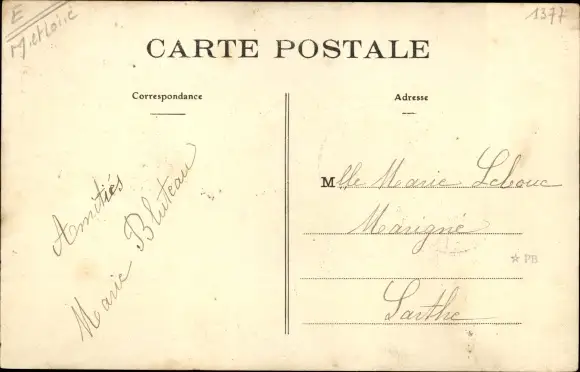 E
M-et-Loire
1377
CARTE POSTALE
Correspondance
Adresse
Amitiés
Marie Bluteau
Mlle Marie Lebouc
Marigné
Sarthe
★ PB